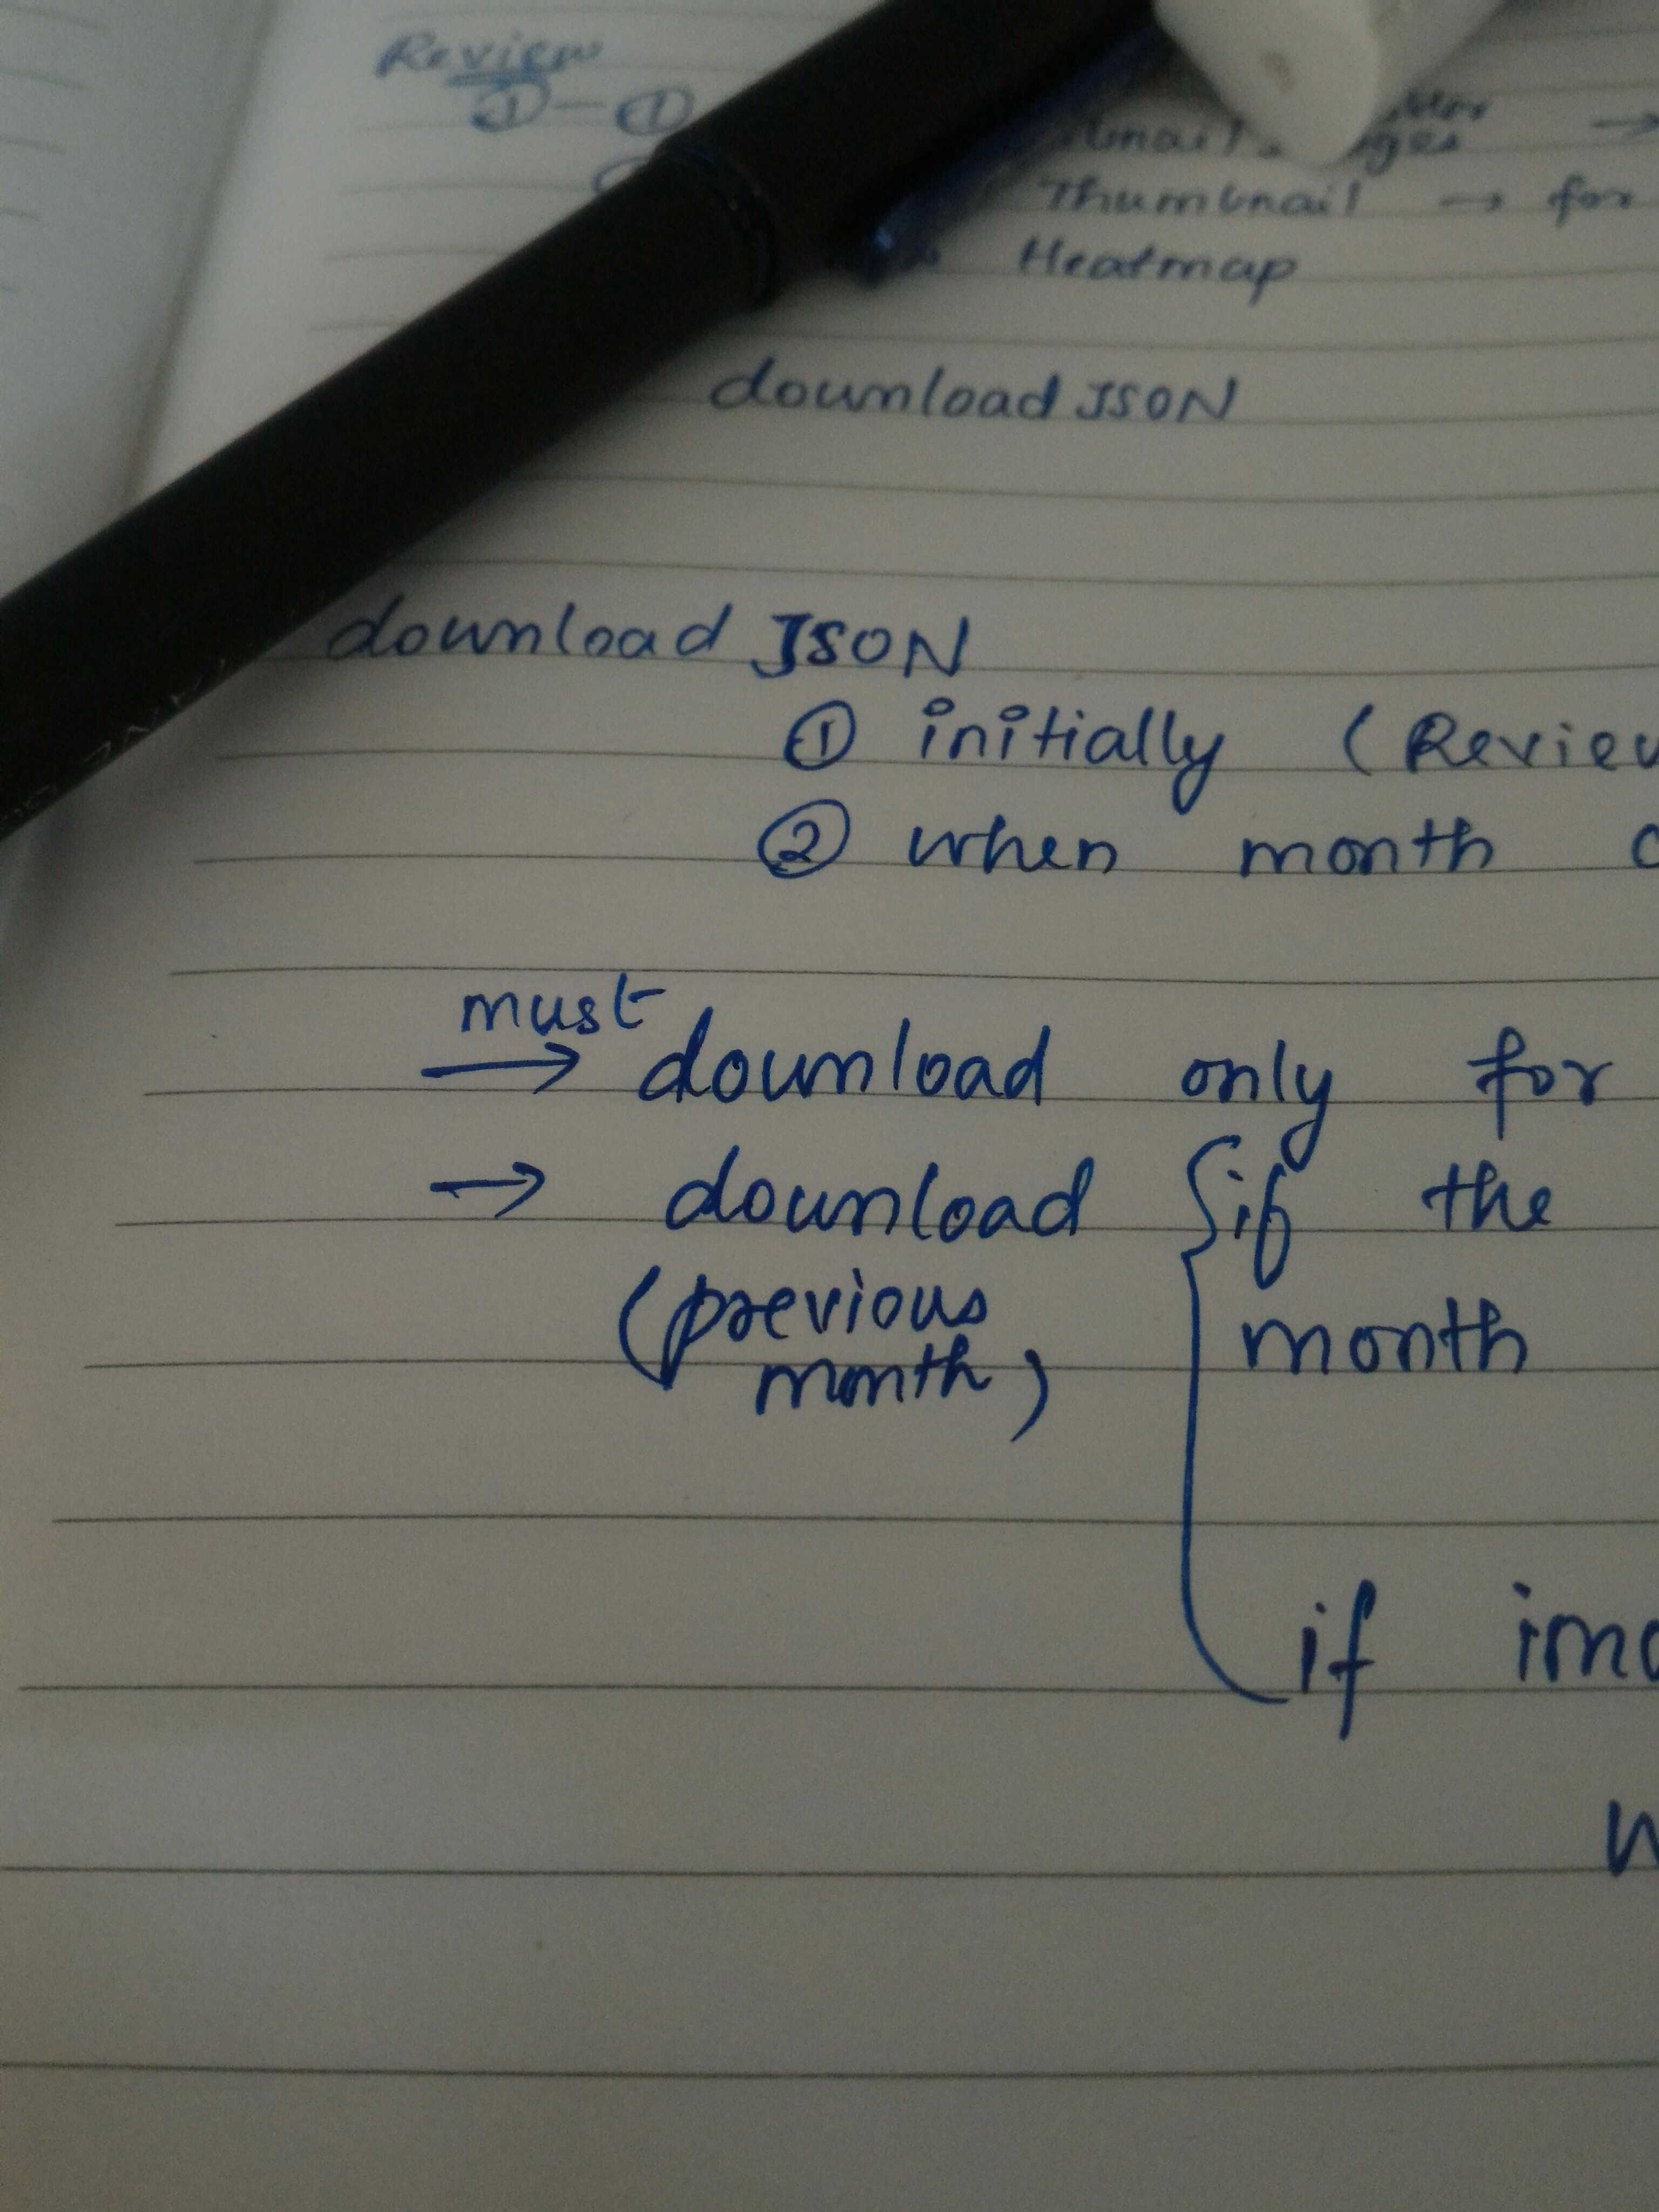 Review
① — ①
Thumbnail → for
Heatmap
download JSON
download JSON
① initially (Review
② when month
must
→ download only for
→ download { if the
(previous month
month)
if